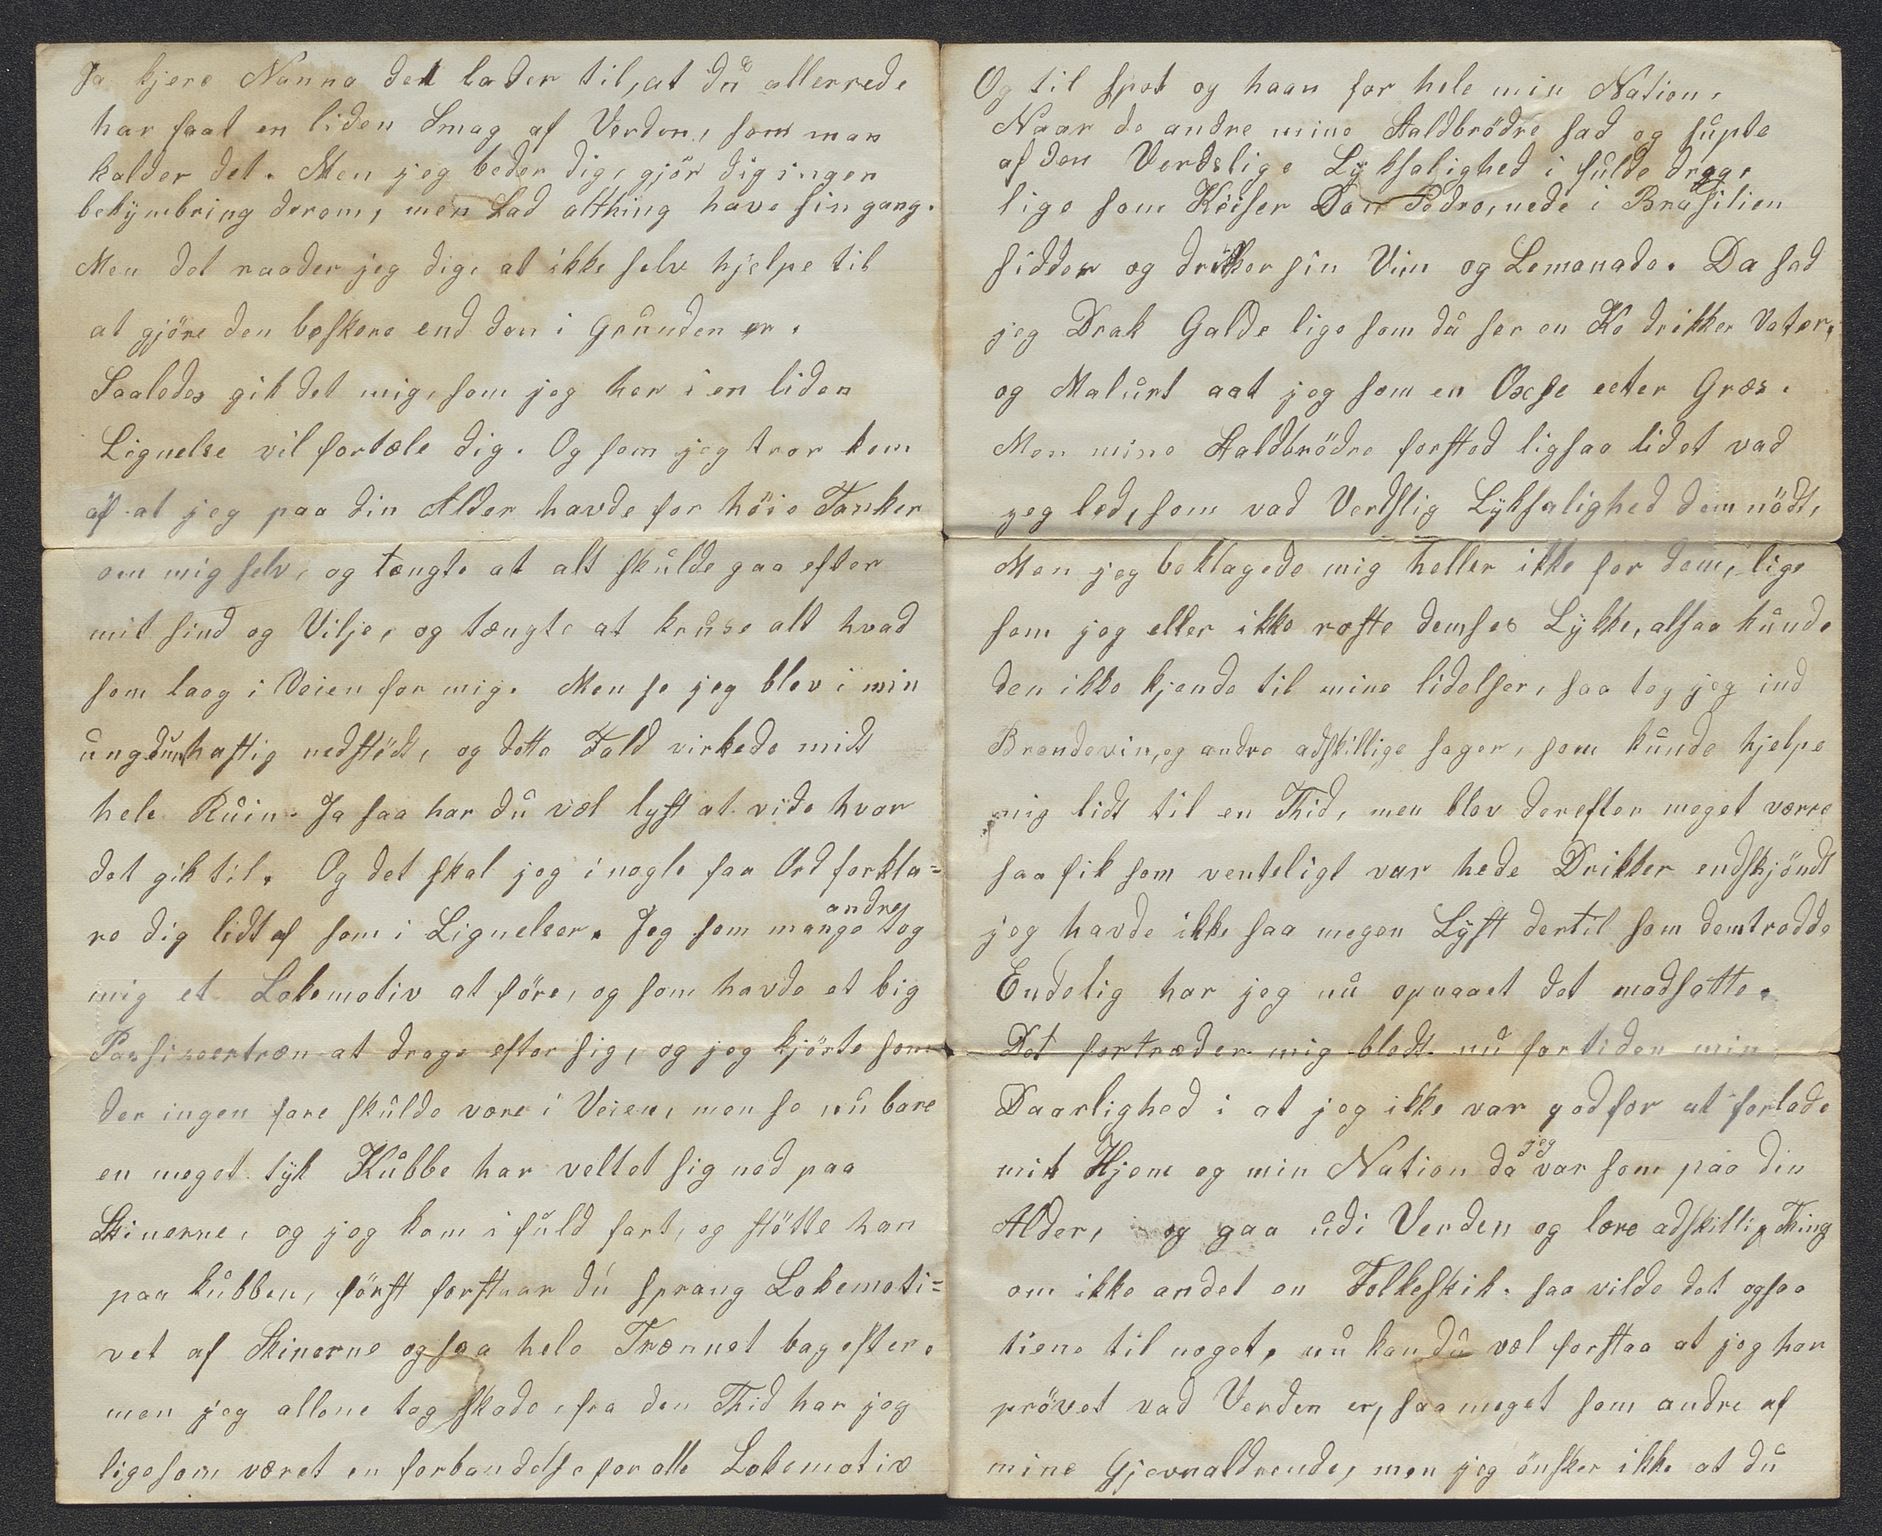 Ja kjere Nanna det lader til, at du allerrede
har faat en liden Smag af Verden, som man
kalder det. Men jeg beder dig, gjör dig ingen
bekymbring derom, men Lad alting have sin gang.
Men det raader jeg dig, at ikke selv hjelpe til
at gjöre den beskere end den i Grunden er.
Saaledes gik det mig, som jeg her i en liden
Lignelse vil fortæle dig. Og som jeg tror kom
af at jeg paa din Alder havde for höie Tanker
om mig selv, og tængte at alt skulde gaa efter
mit sind og Vilje, og tængte at kruse alt hvad
som laag i Veien for mig. Men se jeg blev i min
ungdum hastig nedstödt, og dette Fald virkede midt
hele Ruin. Ja saa har du væl lyst at vide hvor
det gik til. Og det skal jeg i nogle faa Ord forkla=
re dig lidt af som i Lignelser. Jeg som mange andre tog
mig et Lokemotiv at före, og som havde et big
Passiseertræn at drage efter sig, og jeg kjörte som
der ingen fare skulde være i Veien, men se nu bare
en meget tyk Kubbe har veltet sig ned paa
Skinerne, og jeg kom i fuld fart, og stötte han
paa kubben, först forstaar du sprang Lokemoti=
vet af Skinerne og saa hele Trænnet bagefter.
men jeg allene tog skade, fra den Thid har jeg
ligesom været en forbandelse for alle Lokemotiv
Og til spot og haan for hele min Nation,
Naar de andre mine Staldbrödre sad og supte
af den Verdslige Lyksalighed i fulde drag,
lige som Keiser Don Pedro, nede i Brasilien
sidder og drikker sin Vin og Lemonade. Da sad
jeg Drak Galde lige som du ser en Ko drikker Vater,
og Malurt aat jeg som en Oxse eeter Græs.
Men mine Staldbrödre forstod ligsaa lidet vad
jeg led, som vad Verdslig Lyksalighed dem nödt,
Men jeg beklagede mig heller ikke for dem, lige
som jeg eller ikke roste demses Lykke, alsaa kunde
den ikke kjende til mine lidelser, saa tog jeg ind
Brendevin, og andre adskillige sager, som kunde hjelpe
mig lidt til en Thid, men blev derefter meget værre
saa fik som venteligt var hede Drikker endskjöndt
jeg havde ikke saa megen Lyst dertil som dem trodde
Endelig har jeg nu opnaaet det modsatte.
Det fortræder mig blodt nu fortiden min
Daarlighed i at jeg ikke var god for at forlade
mit Hjem og min Nation da jeg var som paa din
Alder, og gaa udi Verden og lære adskillig Thing
om ikke andet en Folkeskik. saa vilde det ogsaa
tiene til noget, nu kan du væl forstaa at jeg har
prövet vad Verden er, saa meget som andre af
mine Gjevnaldrende, men jeg önsker ikke at du